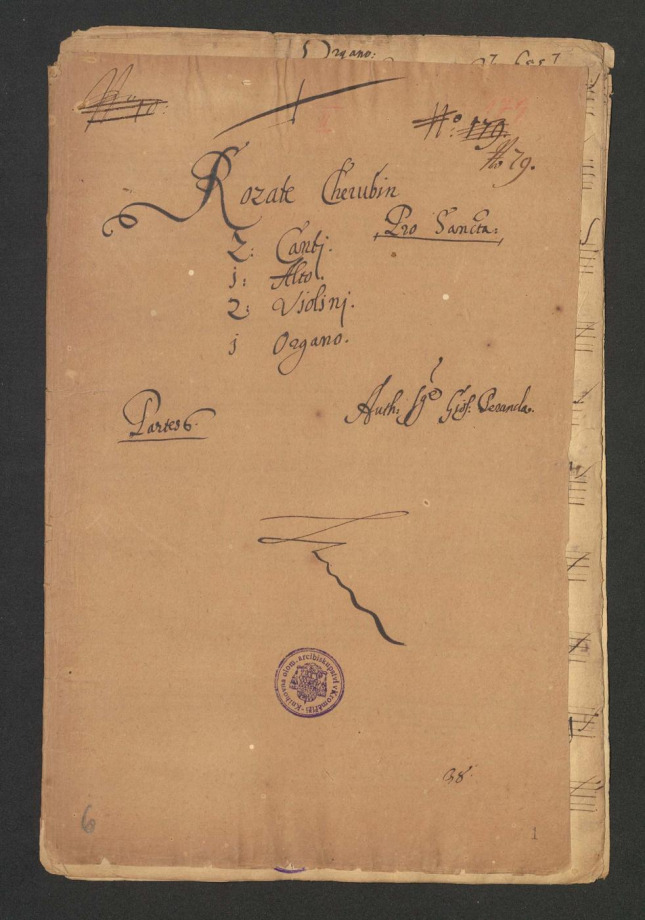 Organo:
No: 179.
No 79.
Rozate Cherubin
Pro Sancta:
2: Canti.
1: Alto.
2: Violini.
1 Organo.
Partes 6.
Auth: Sgre Gios: Peranda.
Knihovna olom. arcibiskupství v Kroměříži
38.
6
1